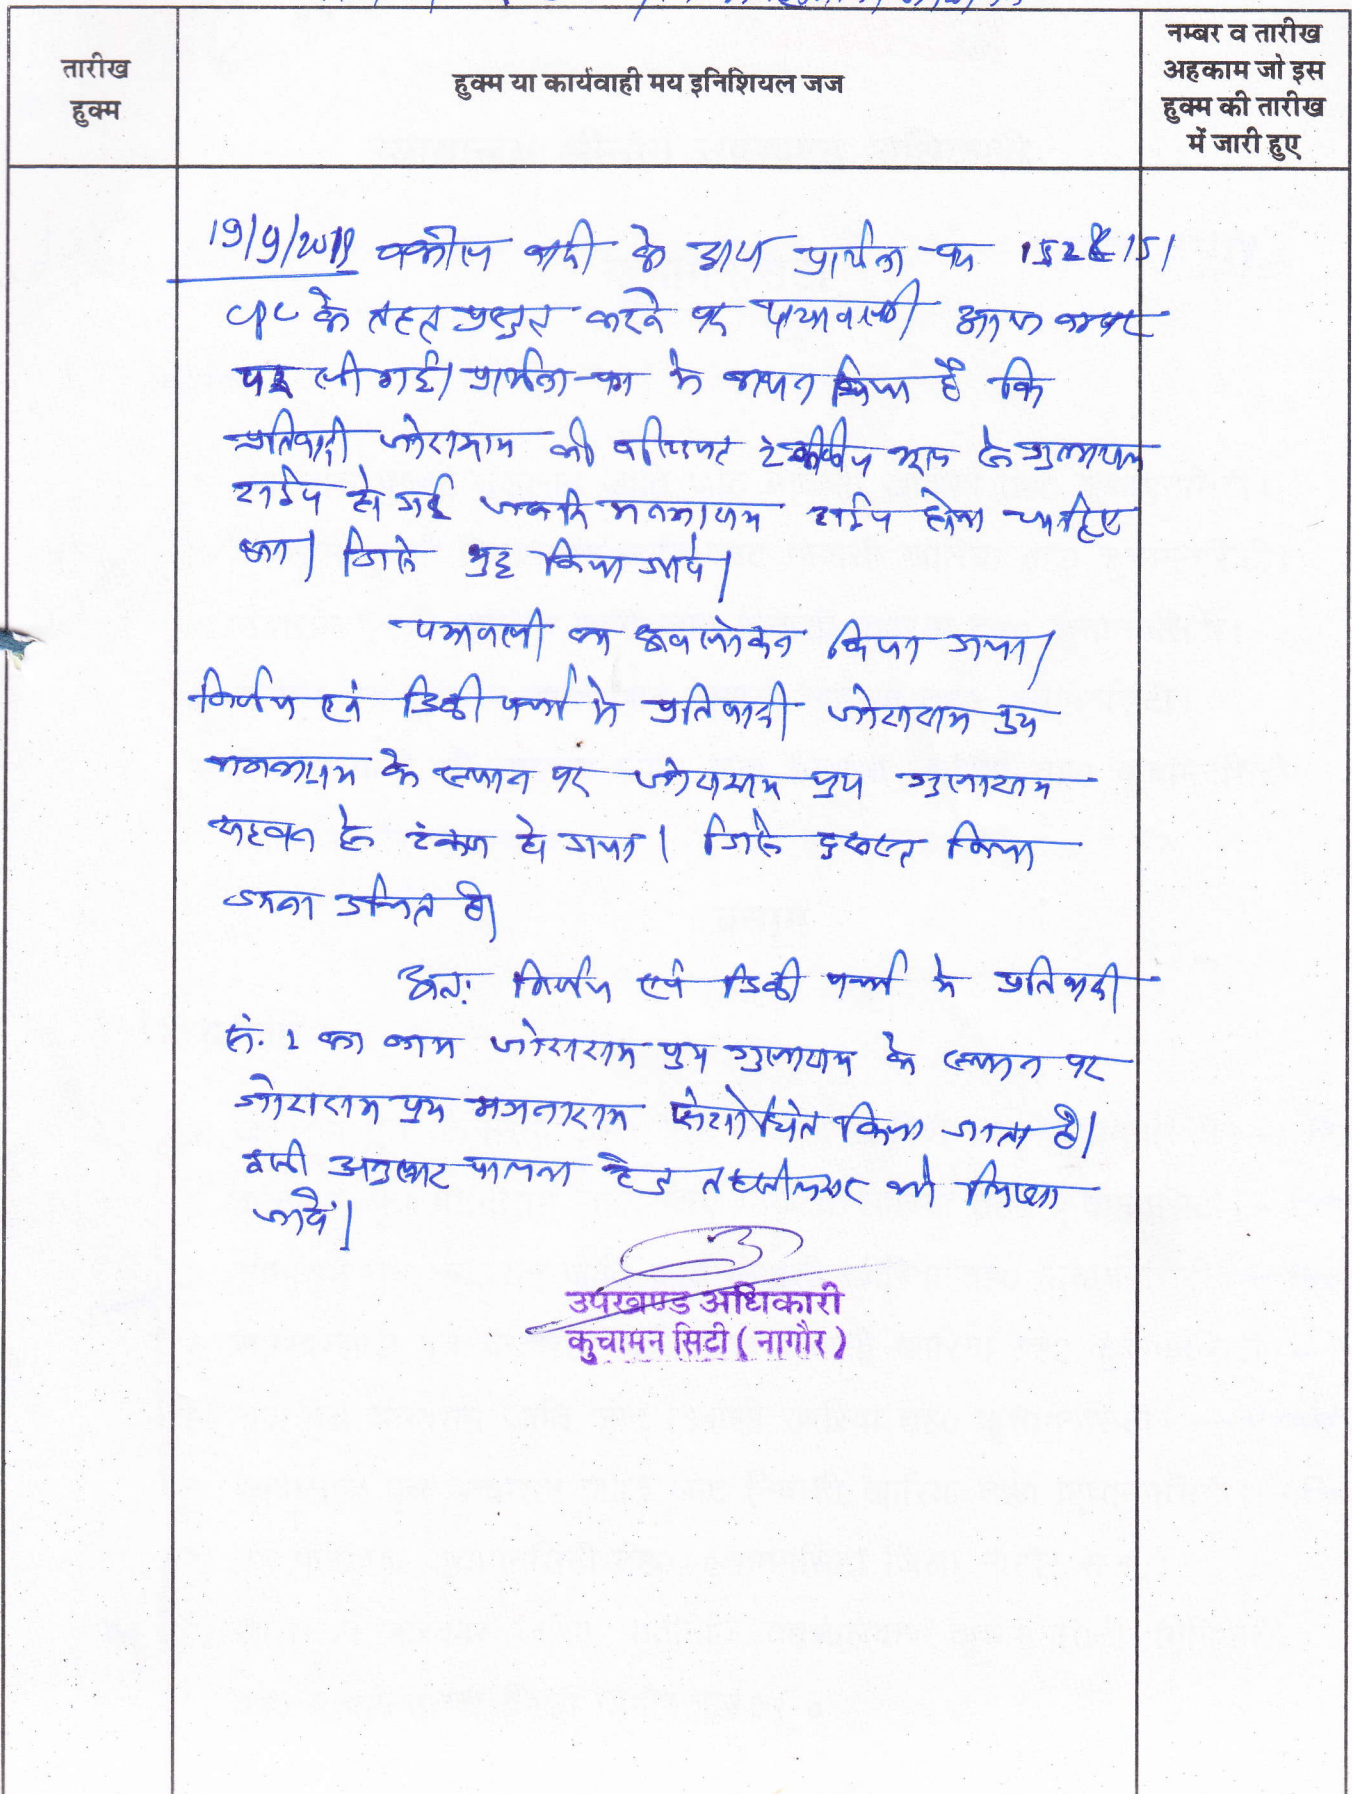 तारीख
हुक्म
हुक्म या कार्यवाही मय इनिशियल जज
नम्बर व तारीख
अहकाम जो इस
हुक्म की तारीख
में जारी हुए
19/9/2019 वकील वादी के द्वारा प्रार्थना पत्र 152 & 151
CPC के तहत प्रस्तुत करने पर पत्रावली आज
पर ली गई। प्रार्थना-पत्र मे कथन किया है कि
प्रतिवादी जोराराम की वल्दियत
टाईप हो गई जबकि मगनाराम टाईप होना चाहिए
था। जिसे शुद्ध किया जावे।
पत्रावली का अवलोकन किया गया।
निर्णय एवं डिक्री पर्चा मे प्रतिवादी जोराराम पुत्र
मगनाराम के स्थान पर जोराराम पुत्र गुलाराम
टंकण हो गया। जिसे दुरूस्त किया
जाना उचित है।
अतः निर्णय एवं डिक्री पर्चा मे प्रतिवादी
सं. 1 का नाम जोराराम पुत्र गुलाराम के स्थान पर
जोराराम पुत्र मगनाराम संशोधित किया जाता है।
इसी अनुसार पालना हेतु तहसीलदार को लिखा
जावें।
उपखण्ड अधिकारी
कुचामन सिटी (नागौर)